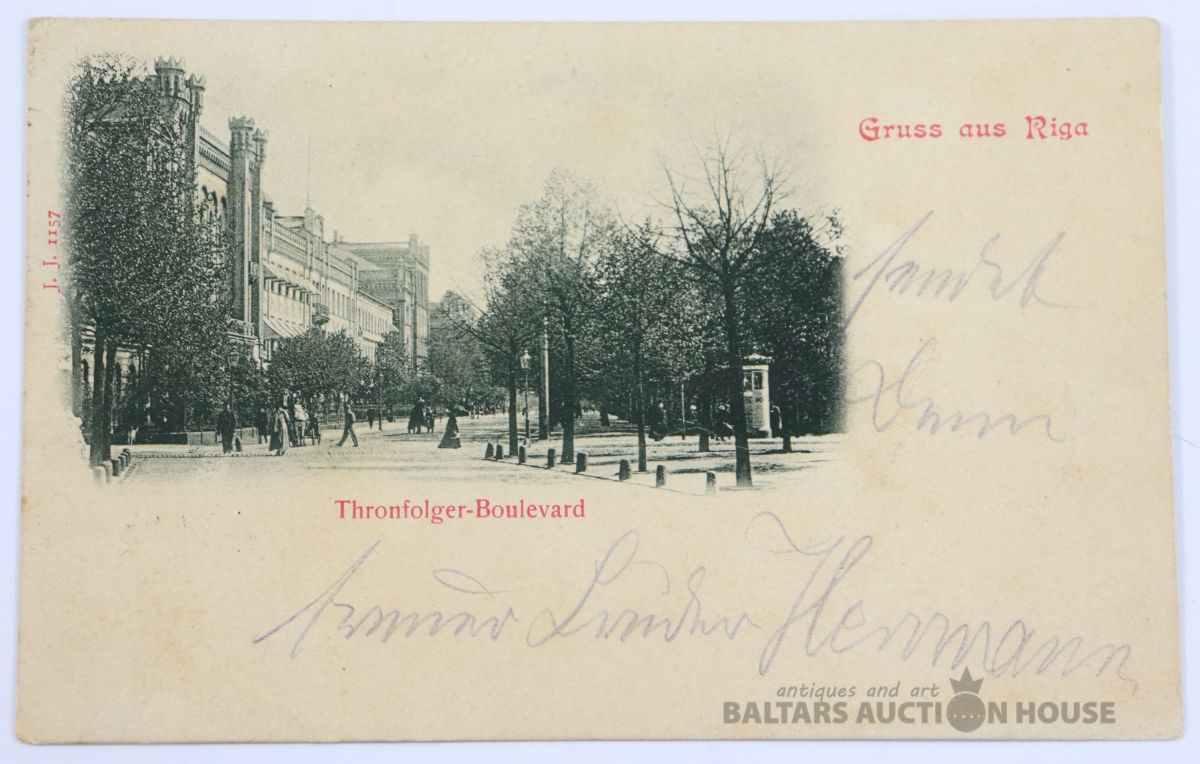 Gruss aus Riga
J. J. 1157
sendet
Dein
Thronfolger-Boulevard
treuer Bruder Herrmann
antiques and art
BALTARS AUCTION HOUSE